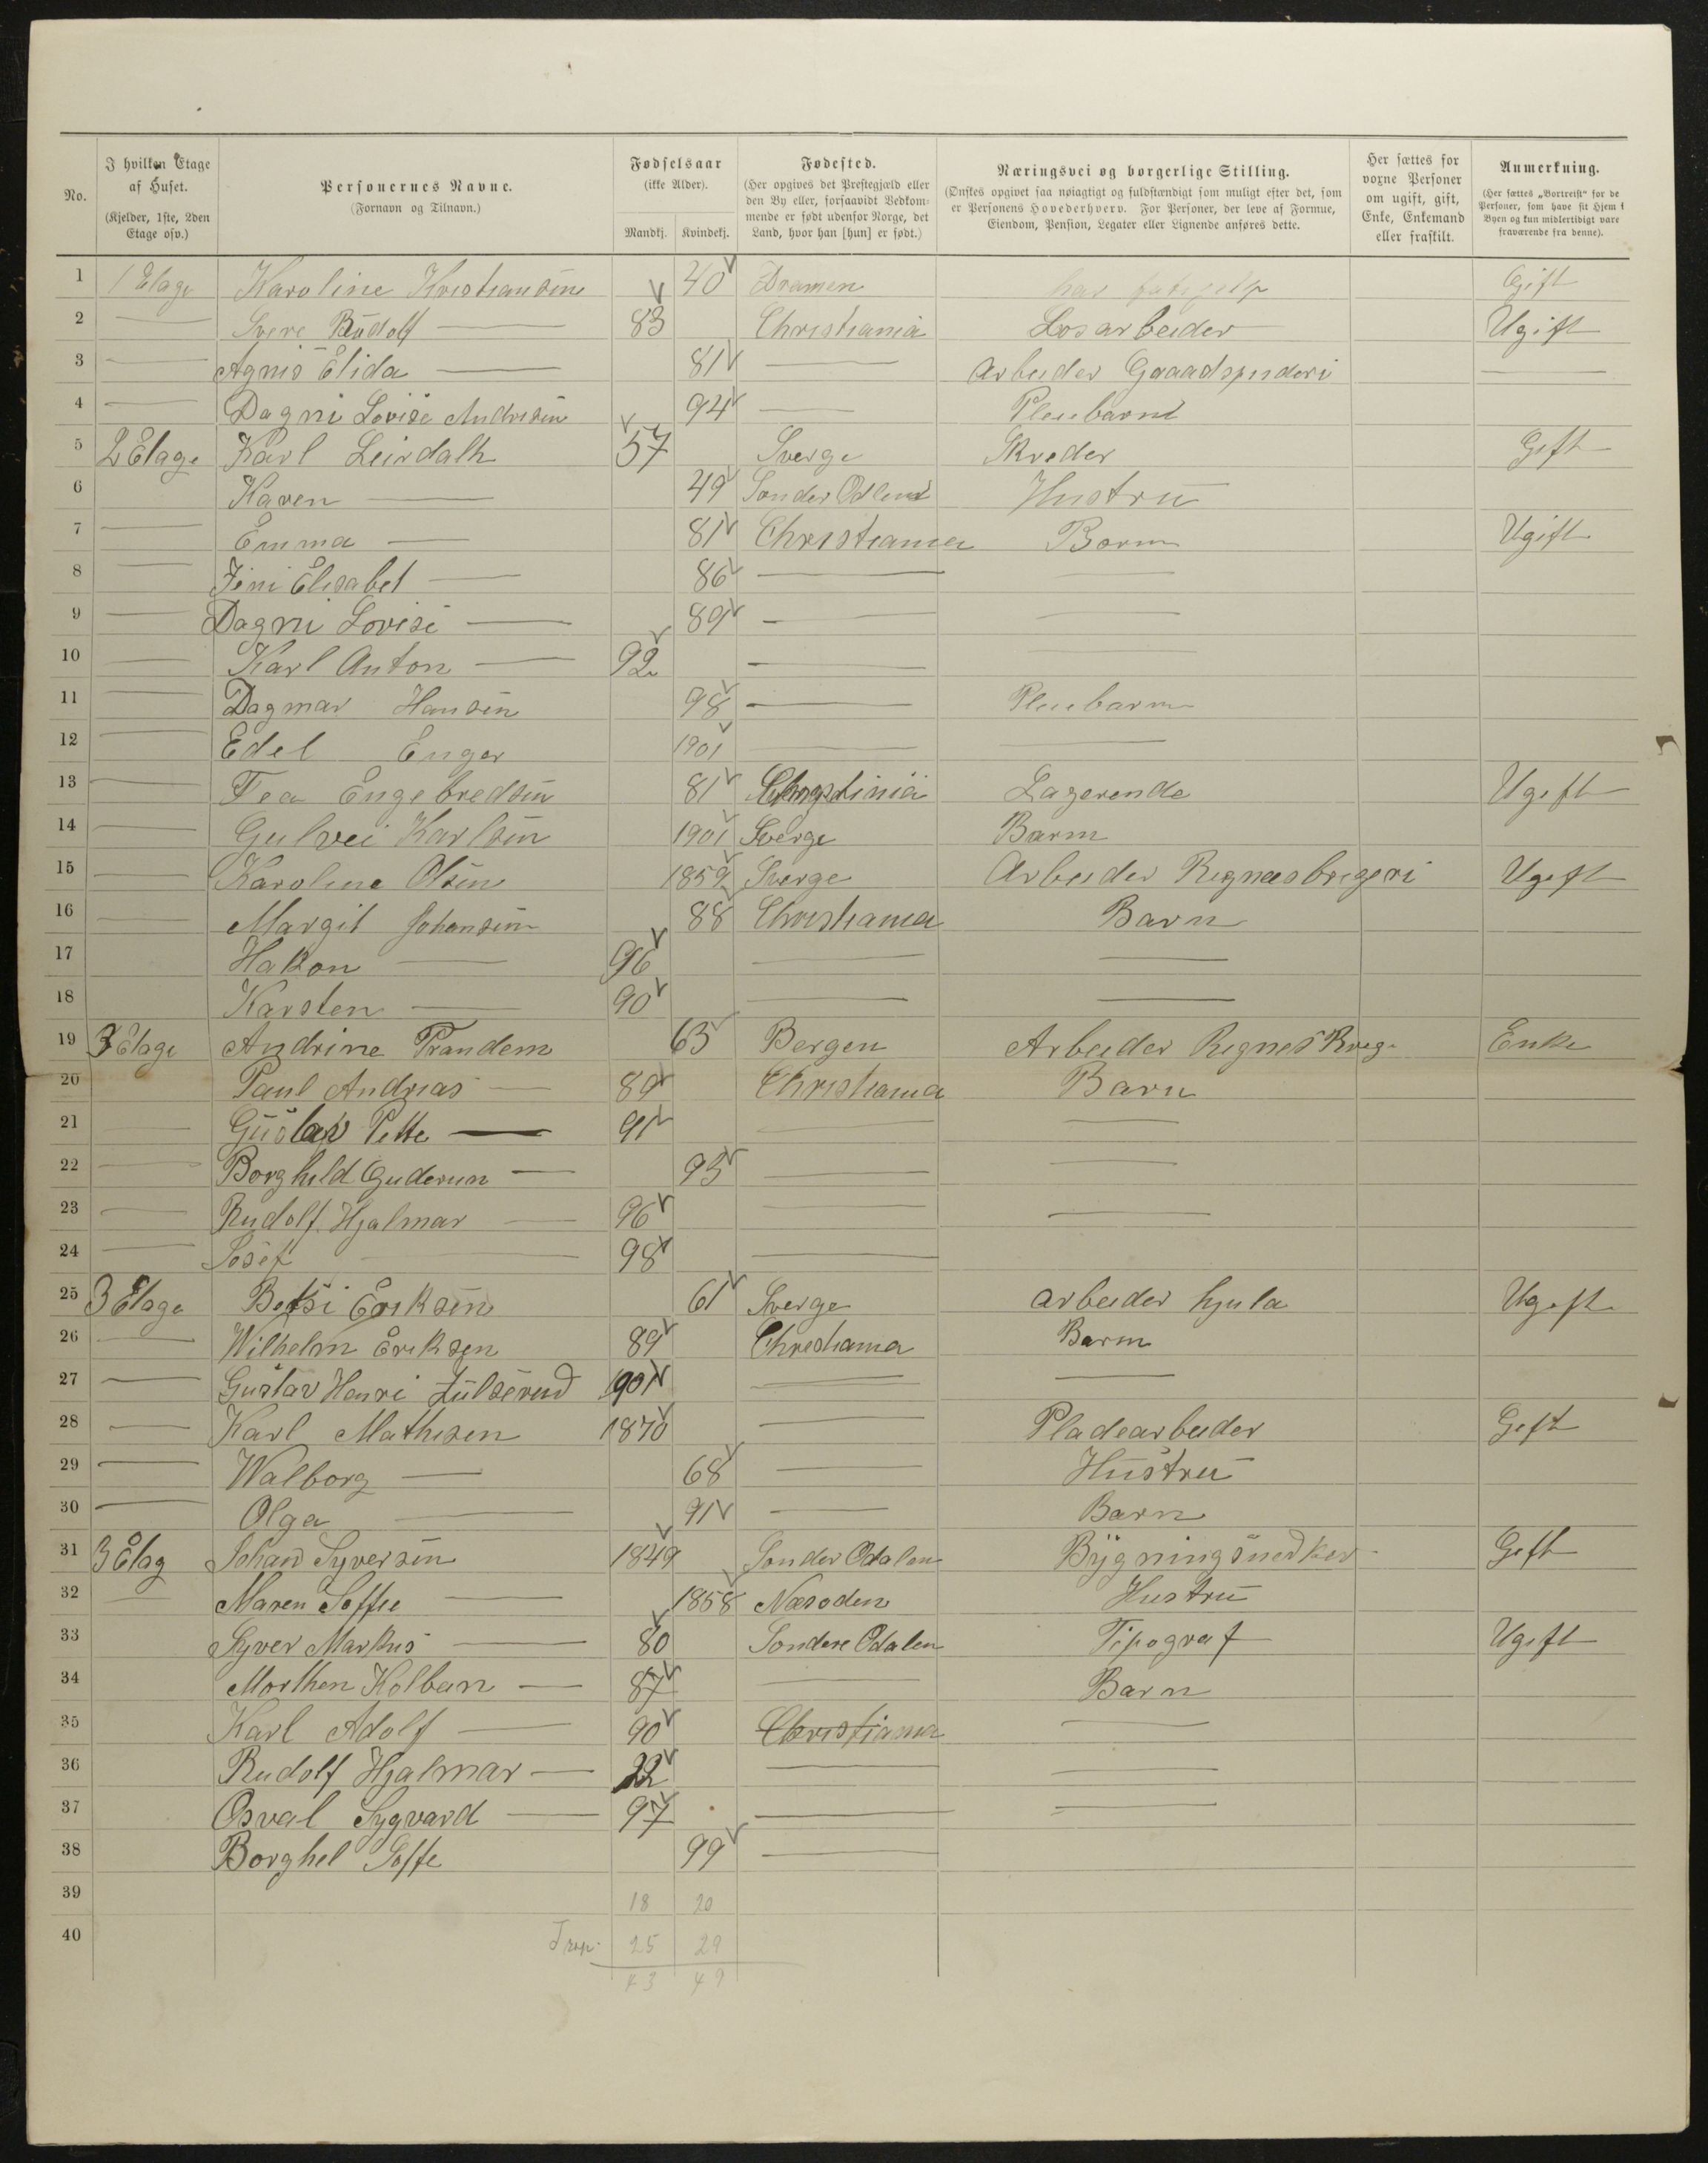 No. I hvilken Etage af Huset. (Kjelder, 1ste, 2den Etage osv.) Personernes Navne. (Fornavn og Tilnavn.) Fødselsaar (ikke Alder). Mandkj. Kvindekj. Fødested. (Her opgives det Prestegjæld eller den By eller, forsaavidt Vedkommende er født udenfor Norge, det Land, hvor han [hun] er født.) Næringsvei og borgerlige Stilling. (Ønskes opgivet saa nøiagtigt og fuldstændigt som muligt efter det, som er Personens Hovederhverv. For Personer, der leve af Formue, Eiendom, Pension, Legater eller Lignende anføres dette. Her sættes for voxne Personer om ugift, gift, Enke, Enkemand eller fraskilt. Anmerkning. (Her sættes „Bortreist" for de Personer, som have sit Hjem i Byen og kun midlertidigt vare fraværende fra denne).
1 1 Etage Karoline Kristiansen 40 Dramen har Gift
2 — Svere Rudolf — 83 Christiania Losarbeider Ugift
3 — Agnis Elida — 81 — Arbeider Gaaadspinderi —
4 — Dagni Lovise Andresen 94 — Pleiebarn
5 2 Etage Karl Leirdalh 57 Sverge Skreder Gift
6 Karen — 49 Sonder Odlend Hustru
7 — Emma — 81 Christiania Barn Ugift
8 — Jeni Elisabet — 86 — —
9 — Dagni Lovise — 89 — —
10 — Karl Anton — 92 — —
11 — Dagmar Hansen 98 — Pleiebarn
12 — Edel Enger 1901 — —
13 — Tea Engebredsen 81 Lagerende Ugift
14 — Gulvei Karlsen 1901 Sverge Barn
15 — Karoline Olsen 1859 Sverge Arbeider Ugift
16 — Margit Johansen 88 Christiania Barn
17 Hakon — 96 — —
18 Karsten — 90 — —
19 3 Etage Andrine Trandem 63 Bergen Arbeider Enke
20 Paul Andrias — 89 Christiania Barn
21 — Gustav Pette — 91 — —
22 — Borghild Guderun — 93 — —
23 — Rudolf Hjalmar — 96 — —
24 — Josef — 98 —
25 3 Etage Betsi Eriksen 61 Sverge Arbeider hjula Ugift
26 — Wilhelm Eriksen 89 Christiania Barn
27 — Gustav Henri 1901 — —
28 — Karl Mathisen 1870 — Pladearbeider Gift
29 — Walborg — 68 — Hustru
30 — Olga — 91 — Barn
31 3 Etag Johan Syversen 1849 Sonder Odalen Bygningsnedker Gift
32 — Maren Soffie — 1858 Nesoden Hustru
33 Syver Markus — 80 Sondere Odalen Tipograf Ugift
34 Morthen Kolben — 87 — Barn
35 Karl Adolf — 90 Christiania —
36 Rudolf Hjalmar — — —
37 Osval Sygvard — 97 — —
38 Borghel Soffe 99 —
39 18 20
40 25 29
43 49